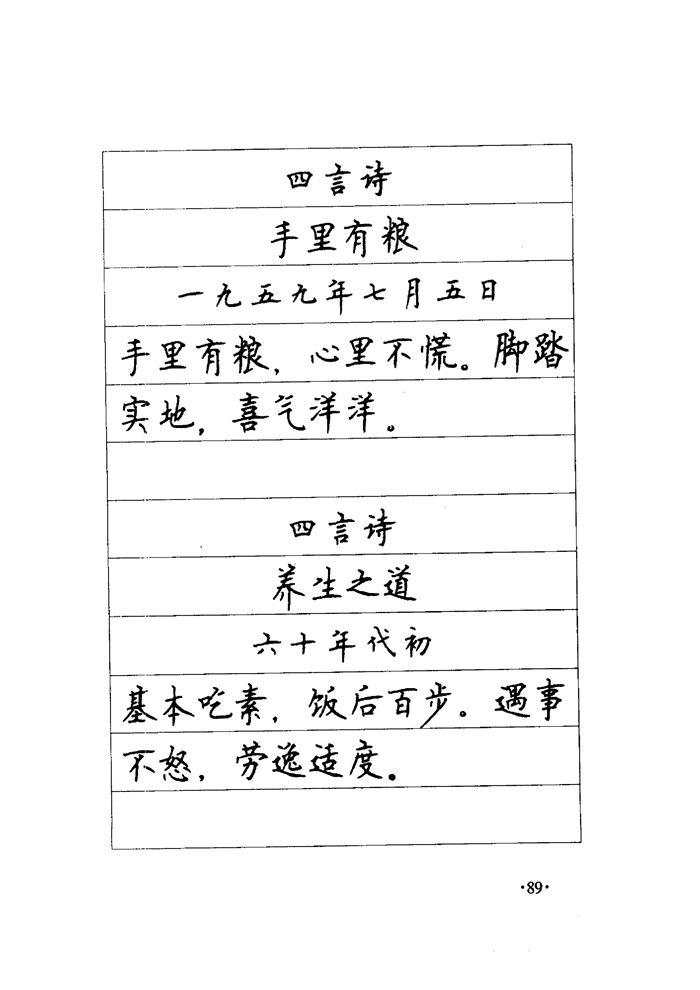 四言诗
手里有粮
一九五九年七月五日
手里有粮，心里不慌。脚踏
实地，喜气洋洋。
四言诗
养生之道
六十年代初
基本吃素，饭后百步。遇事
不怒，劳逸适度。
·89·